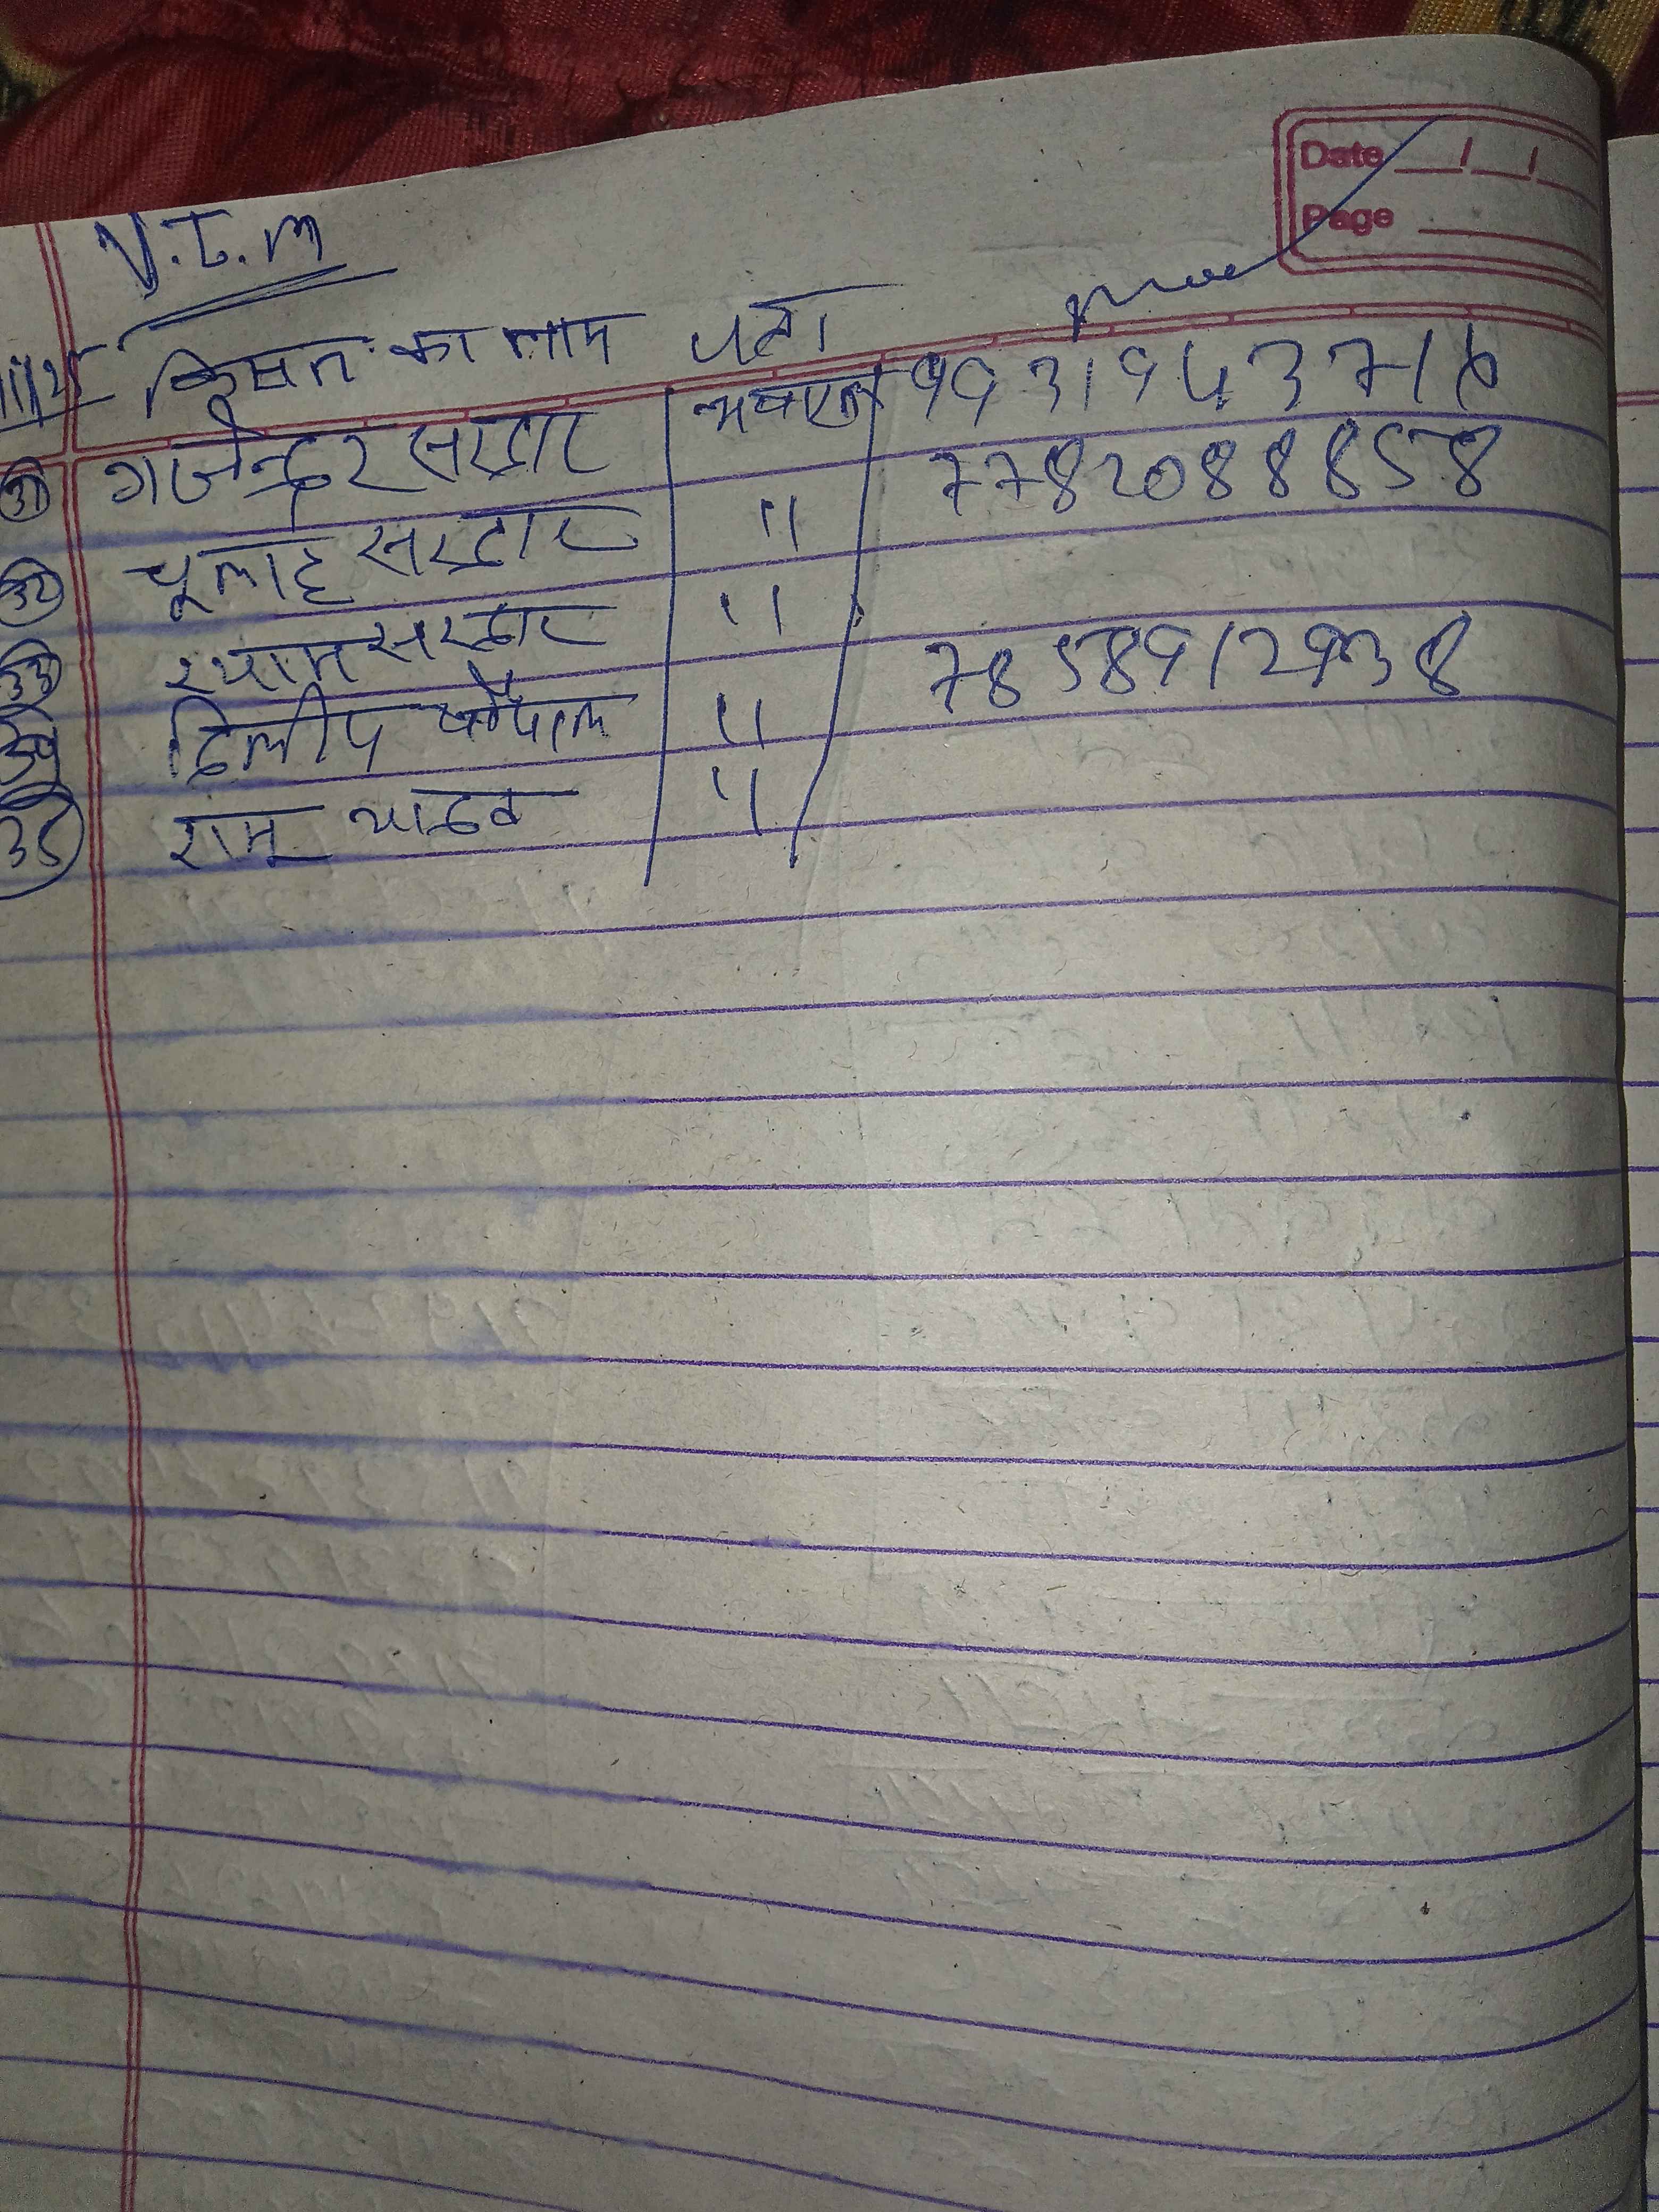 Date / /
Page
V.T.M
किसान का नाम पता
31 गजेन्द्रर सरदार 9931943716
32 चूलाह सरदार " 7782088858
33 श्याम सरदार "
34 दिलीप " 7858912938
35 रामू यादव "